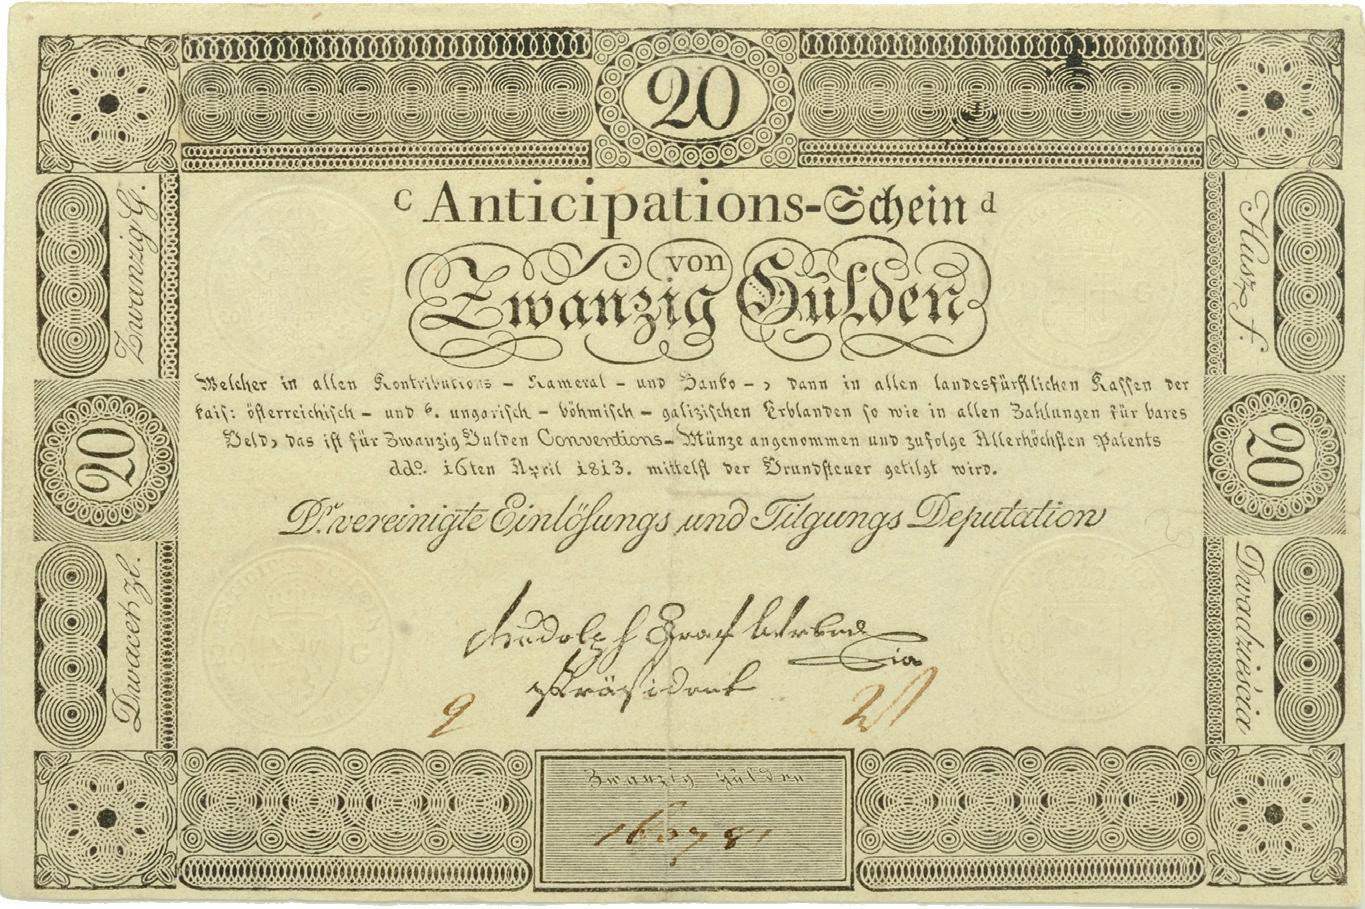 20
c Anticipations-Schein d
von
Zwanzig Gulden
Welcher in allen Kontributions – Kameral – und Banko –, dann in allen landesfürstlichen Kassen der
kais: österreichisch – und k. ungarisch – böhmisch – galizischen Erblanden so wie in allen Zahlungen für bares
Geld, das ist für Zwanzig Gulden Conventions–Münze angenommen und zufolge Allerhöchsten Patents
ddo. 16ten April 1813. mittelst der Grundsteuer getilgt wird.
Dr vereinigte Einlösungs und Tilgungs Deputation
Rudolph Graf
Präsident
Zwanzig G.
20
Dwacet zl.
Husz f.
20
Dwadzieścia
9
Zwanzig Gulden